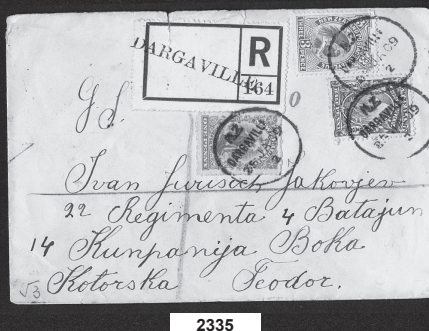 DARGAVILLE
R
464
NEW ZEALAND
N.Z
DARGAVILLE
N.Z
DARGAVILLE
2
G S.
Ivan Jakovjev
22 Regimenta 4 Batajun
14 Kunpanija Boka
Kotorska Teodor.
√3
0
2335